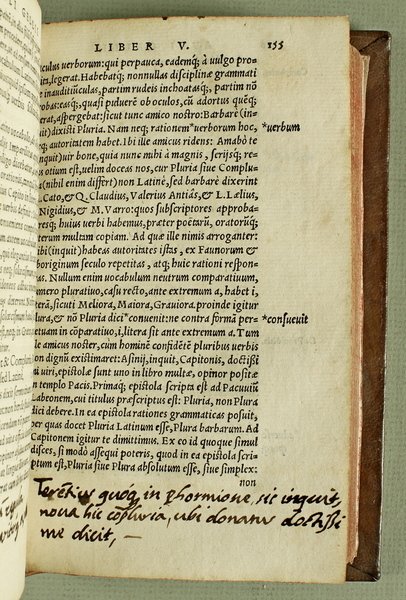 LIBER V. 155
culus verborum: qui perpauca, eademq́; à uulgo pro-
ita, legerat. Habebatq́; nonnullas disciplinæ grammati
inauditiũculas, partim rudeis inchoatasq́;, partim nõ
robas: easq́;, quasi puluerẽ ob oculos, cũ adortus quẽq́;
erat, aspergebat: sicut tunc amico nostro: Barbarè (in-
uit) dixisti Pluria. Nam neq; rationem *uerborum hoc,
q; autoritatem habet. Ibi ille amicus ridens: Amabò te
inquit) uir bone, quia nunc mihi à magnis, serijsq́; re-
us otium est, uelim doceas nos, cur Pluria siue Complu-
a (nihil enim differt) non Latinè, sed barbarè dixerint
. Cato, & Q. Claudius, Valerius Antiâs, & L. Lælius,
Nigidius, & M. Varro: quos subscriptores approba-
resq́; huius uerbi habemus, præter poëtarũ, oratorũq́;
terum multam copiam. Ad quæ ille nimis arroganter:
ibi (inquit) habeas autoritates istas, ex Faunorum &
boriginum sæculo repetitas, atq; huic rationi respon-
as. Nullum enim uocabulum neutrum comparatiuum,
umero pluratiuo, casu recto, ante extremum a, habet i,
terã, sicuti Meliora, Maiora, Grauiora. proinde igitur
lura, & nõ Pluria dici *conuenit: ne contra formã per-
etuam in cõparatiuo, i, litera sit ante extremum a. Tum
le amicus noster, cum hominẽ confidẽtẽ pluribus uerbis
on dignũ existimaret: Asinij, inquit, Capitonis, doctißi
i uiri, epistolæ sunt uno in libro multæ, opinor positæ
n templo Pacis. Primaq́; epistola scripta est ad Pacuuiũ
abeonem, cui titulus præscriptus est: Pluria, non Plura
dici debere. In ea epistola rationes grammaticas posuit,
per quas docet Pluria Latinum esse, Plura barbarum. Ad
Capitonem igitur te dimittimus. Ex eo id quoque simul
disces, si modò assequi poteris, quod in ea epistola scri-
ptum est, Pluria siue Plura absolutum esse, siue simplex:
non
*verbum
*consueuit
Terẽtius quóq, in phormione, sic inquit,
noua hic cõpluria, ubi donatus doctissi
me dicit, —